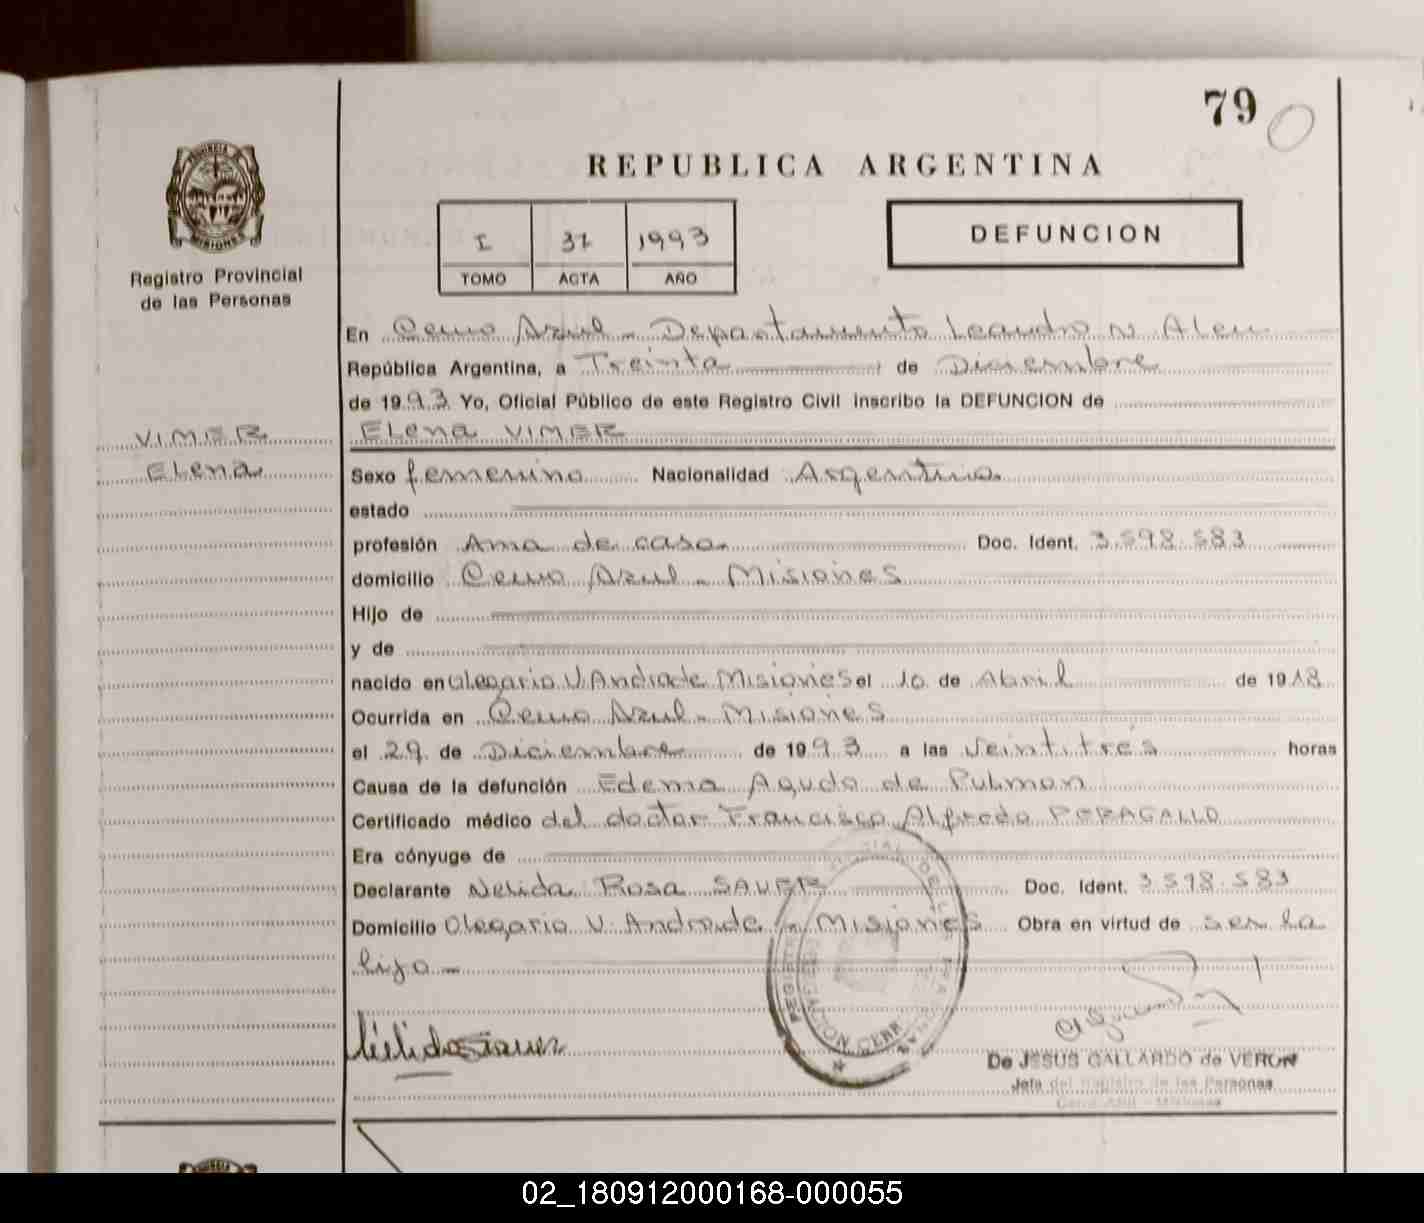 79
REPUBLICA ARGENTINA
PROVINCIA
MISIONES
Registro Provincial
de las Personas
I 31 1993
TOMO ACTA AÑO
DEFUNCION
En Cerro Azul - Departamento Leandro N Alem
República Argentina, a Treinta de Diciembre
de 1993 Yo, Oficial Público de este Registro Civil inscribo la DEFUNCION de
VIMER
Elena VIMER
Elena
Sexo femenino Nacionalidad Argentina
estado
profesión Ama de casa Doc. Ident. 3.598.583
domicilio Cerro Azul - Misiones
Hijo de
y de
nacido en Olegario V. Andrade Misiones el 10 de Abril de 1918
Ocurrida en Cerro Azul - Misiones
el 29 de Diciembre de 1993 a las Veintitrés horas
Causa de la defunción Edema Agudo de Pulmon
Certificado médico del doctor Francisco Alfredo PERAGALLO
Era cónyuge de
Declarante Nelida Rosa SAUER Doc. Ident. 3.598.583
Domicilio Olegario V. Andrade - Misiones Obra en virtud de ser la
hija -
De JESUS GALLARDO de VERON
Jefa del Registro de las Personas
Cerro Azul - Misiones
02_180912000168-000055